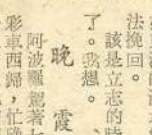 法挽回。
該是立志的時
了。我想。
晚霞
阿波羅駕著七
彩車西歸，忙碌